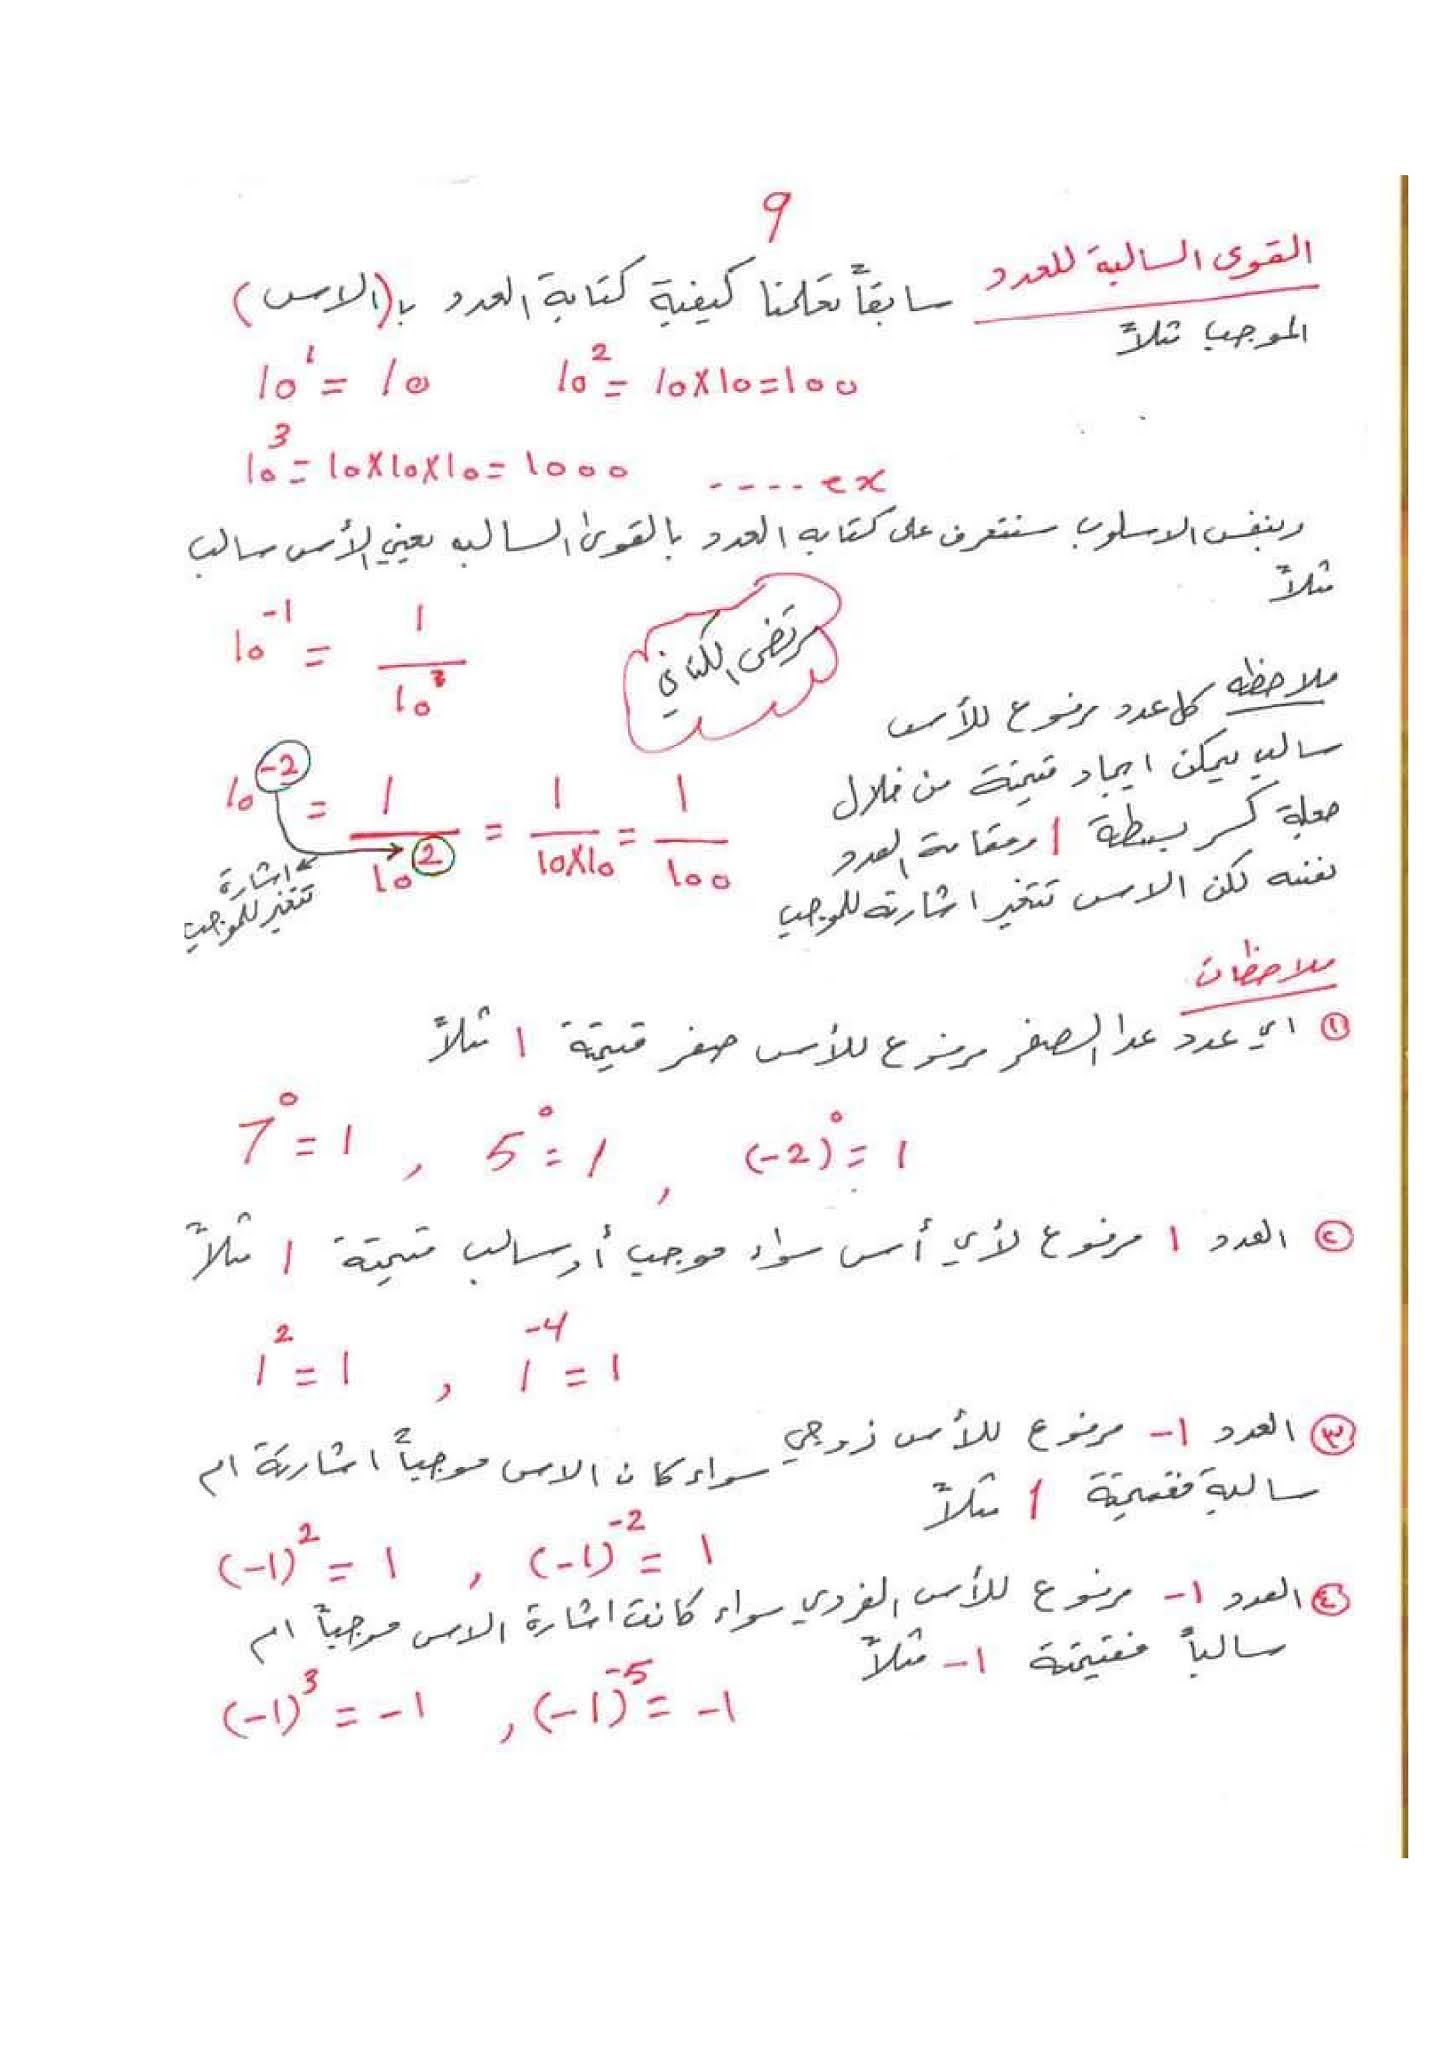 9
القوى السالبة للعدد سابقاً تعلمنا كيفية كتابة العدد با(الاس)
الموجب مثلاً
10¹ = 10 10² = 10×10=100
10³ = 10×10×10= 1000 ---- ex
وبنفس الاسلوب سنتعرف على كتابه العدد بالقوى السالبه يعني الأس سالب
مثلاً
10⁻¹ = 1/10
مرتضى الكناني
ملاحظه كل عدد مرفوع للأس
سالب يمكن ايجاد قيمتة من خلال
جعلة كسر بسيطة 1 ومقامة العدد
نفسه لكن الاس تتغير اشارته للموجب
10⁻² = 1/10² = 1/10×10 = 1/100
اشارة
تتغير للموجب
ملاحظات
① اي عدد عدا الصفر مرفوع للأس صفر قيمتة 1 مثلاً
7⁰ = 1 , 5⁰ = 1 , (-2)⁰ = 1
② العدد 1 مرفوع لأي أس سواء موجب أو سالب قيمتة 1 مثلاً
1² = 1 , 1⁻⁴ = 1
③ العدد 1- مرفوع للأس زوجي سواء كان الاس موجباً اشارتة ام
سالبة فقيمتة 1 مثلاً
(-1)² = 1 , (-1)⁻² = 1
④ العدد 1- مرفوع للأس الفردي سواء كانت اشارة الاس موجباً ام
سالباً فقيمتة 1- مثلاً
(-1)³ = -1 , (-1)⁻⁵ = -1